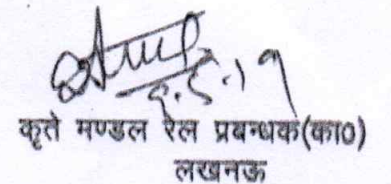 कृते मण्डल रेल प्रबन्धक(का०)
लखनऊ